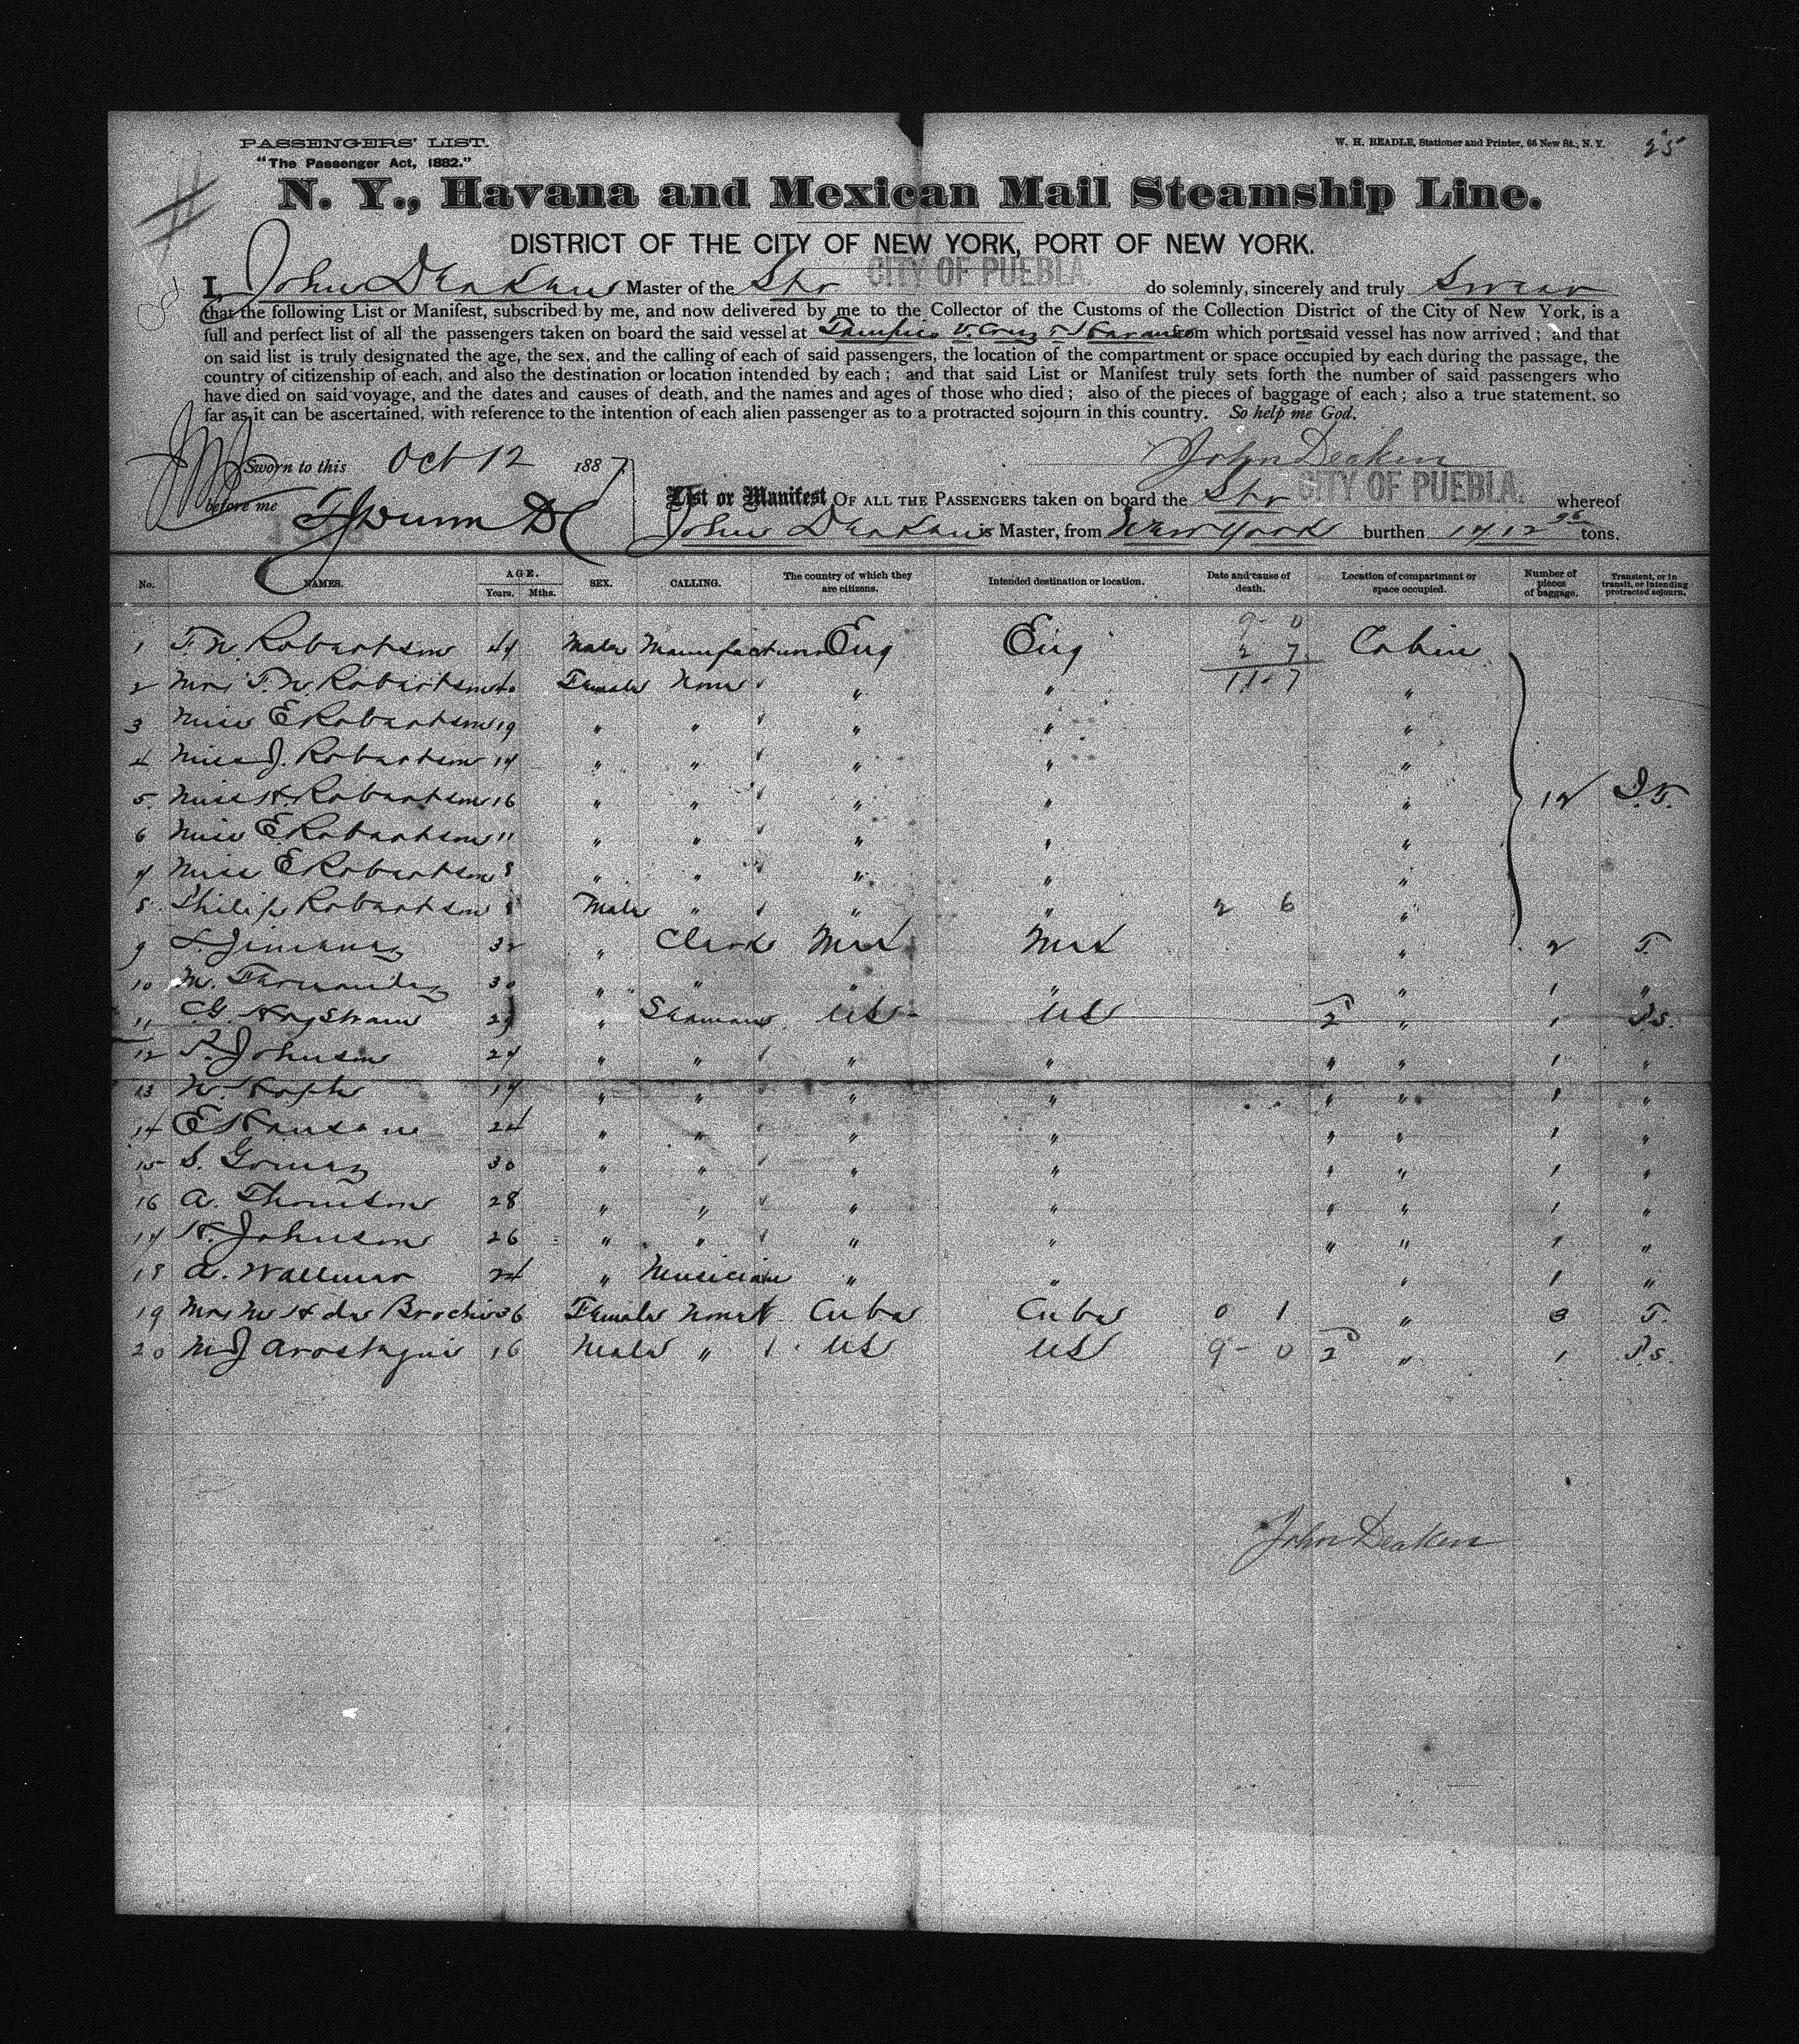 PASSENGERS' LIST.
"The Passenger Act, 1882."
W. H. BEADLE, Stationer and Printer, 66 New St., N. Y.
25
N. Y., Havana and Mexican Mail Steamship Line.
DISTRICT OF THE CITY OF NEW YORK, PORT OF NEW YORK.
I, John Deaken Master of the Str CITY OF PUEBLA do solemnly, sincerely and truly Swear
that the following List or Manifest, subscribed by me, and now delivered by me to the Collector of the Customs of the Collection District of the City of New York, is a
full and perfect list of all the passengers taken on board the said vessel at Tampico V. Cruz & Havana from which ports said vessel has now arrived; and that
on said list is truly designated the age, the sex, and the calling of each of said passengers, the location of the compartment or space occupied by each during the passage, the
country of citizenship of each, and also the destination or location intended by each; and that said List or Manifest truly sets forth the number of said passengers who
have died on said voyage, and the dates and causes of death, and the names and ages of those who died; also of the pieces of baggage of each; also a true statement, so
far as it can be ascertained, with reference to the intention of each alien passenger as to a protracted sojourn in this country. So help me God.
Sworn to this Oct 12 1887
John Deaken
before me
List or Manifest OF ALL THE PASSENGERS taken on board the Str CITY OF PUEBLA. whereof
John Deaken is Master, from New York burthen 1712 tons.
No. NAMES. AGE. Years. Mths. SEX. CALLING. The country of which they are citizens. Intended destination or location. Date and cause of death. Location of compartment or space occupied. Number of pieces of baggage. Transient, or in transit, or intending protracted sojourn.
9 - 0
1 T. W. Robertson 44 Male Manufacturer Eng Eng 2 7 Cabin
2 Mrs T. W. Robertson 40 Female None " " 11 - 7 "
3 Miss E Robertson 19 " " " " "
4 Miss J. Robertson 17 " " " " "
5. Miss H. Robertson 16 " " " " " 12 I.T.
6 Miss E Robertson 11 " " " " "
7 Miss E Robertson 8 " " " " "
8. Philip Robertson 8 Male " " " 2 6 "
9 L. Jimenez 32 " Clerk Mex Mex " 2 T.
10 M. Fernandez 30 " " " " " 1 "
11 29 " Seaman US US 2 " 1 P.S.
12 Johnson 27 " " " " " " 1 "
13 19 " " " " " " 1 "
14 E Hansen 24 " " " " " " 1 "
15 S. Gomez 30 " " " " " " 1 "
16 A. Thomson 28 " " " " " " 1 "
17 H. Johnson 26 " " " " " " 1 "
18 A. Wallmar 24 " Musician " " " 1 "
19 Mrs M H de 36 Female None Cuba Cuba 0 1 " 3 T.
20 M J Arostegui 16 Male " US US 9 - 0 2 " 1 P.S.
John Deaken